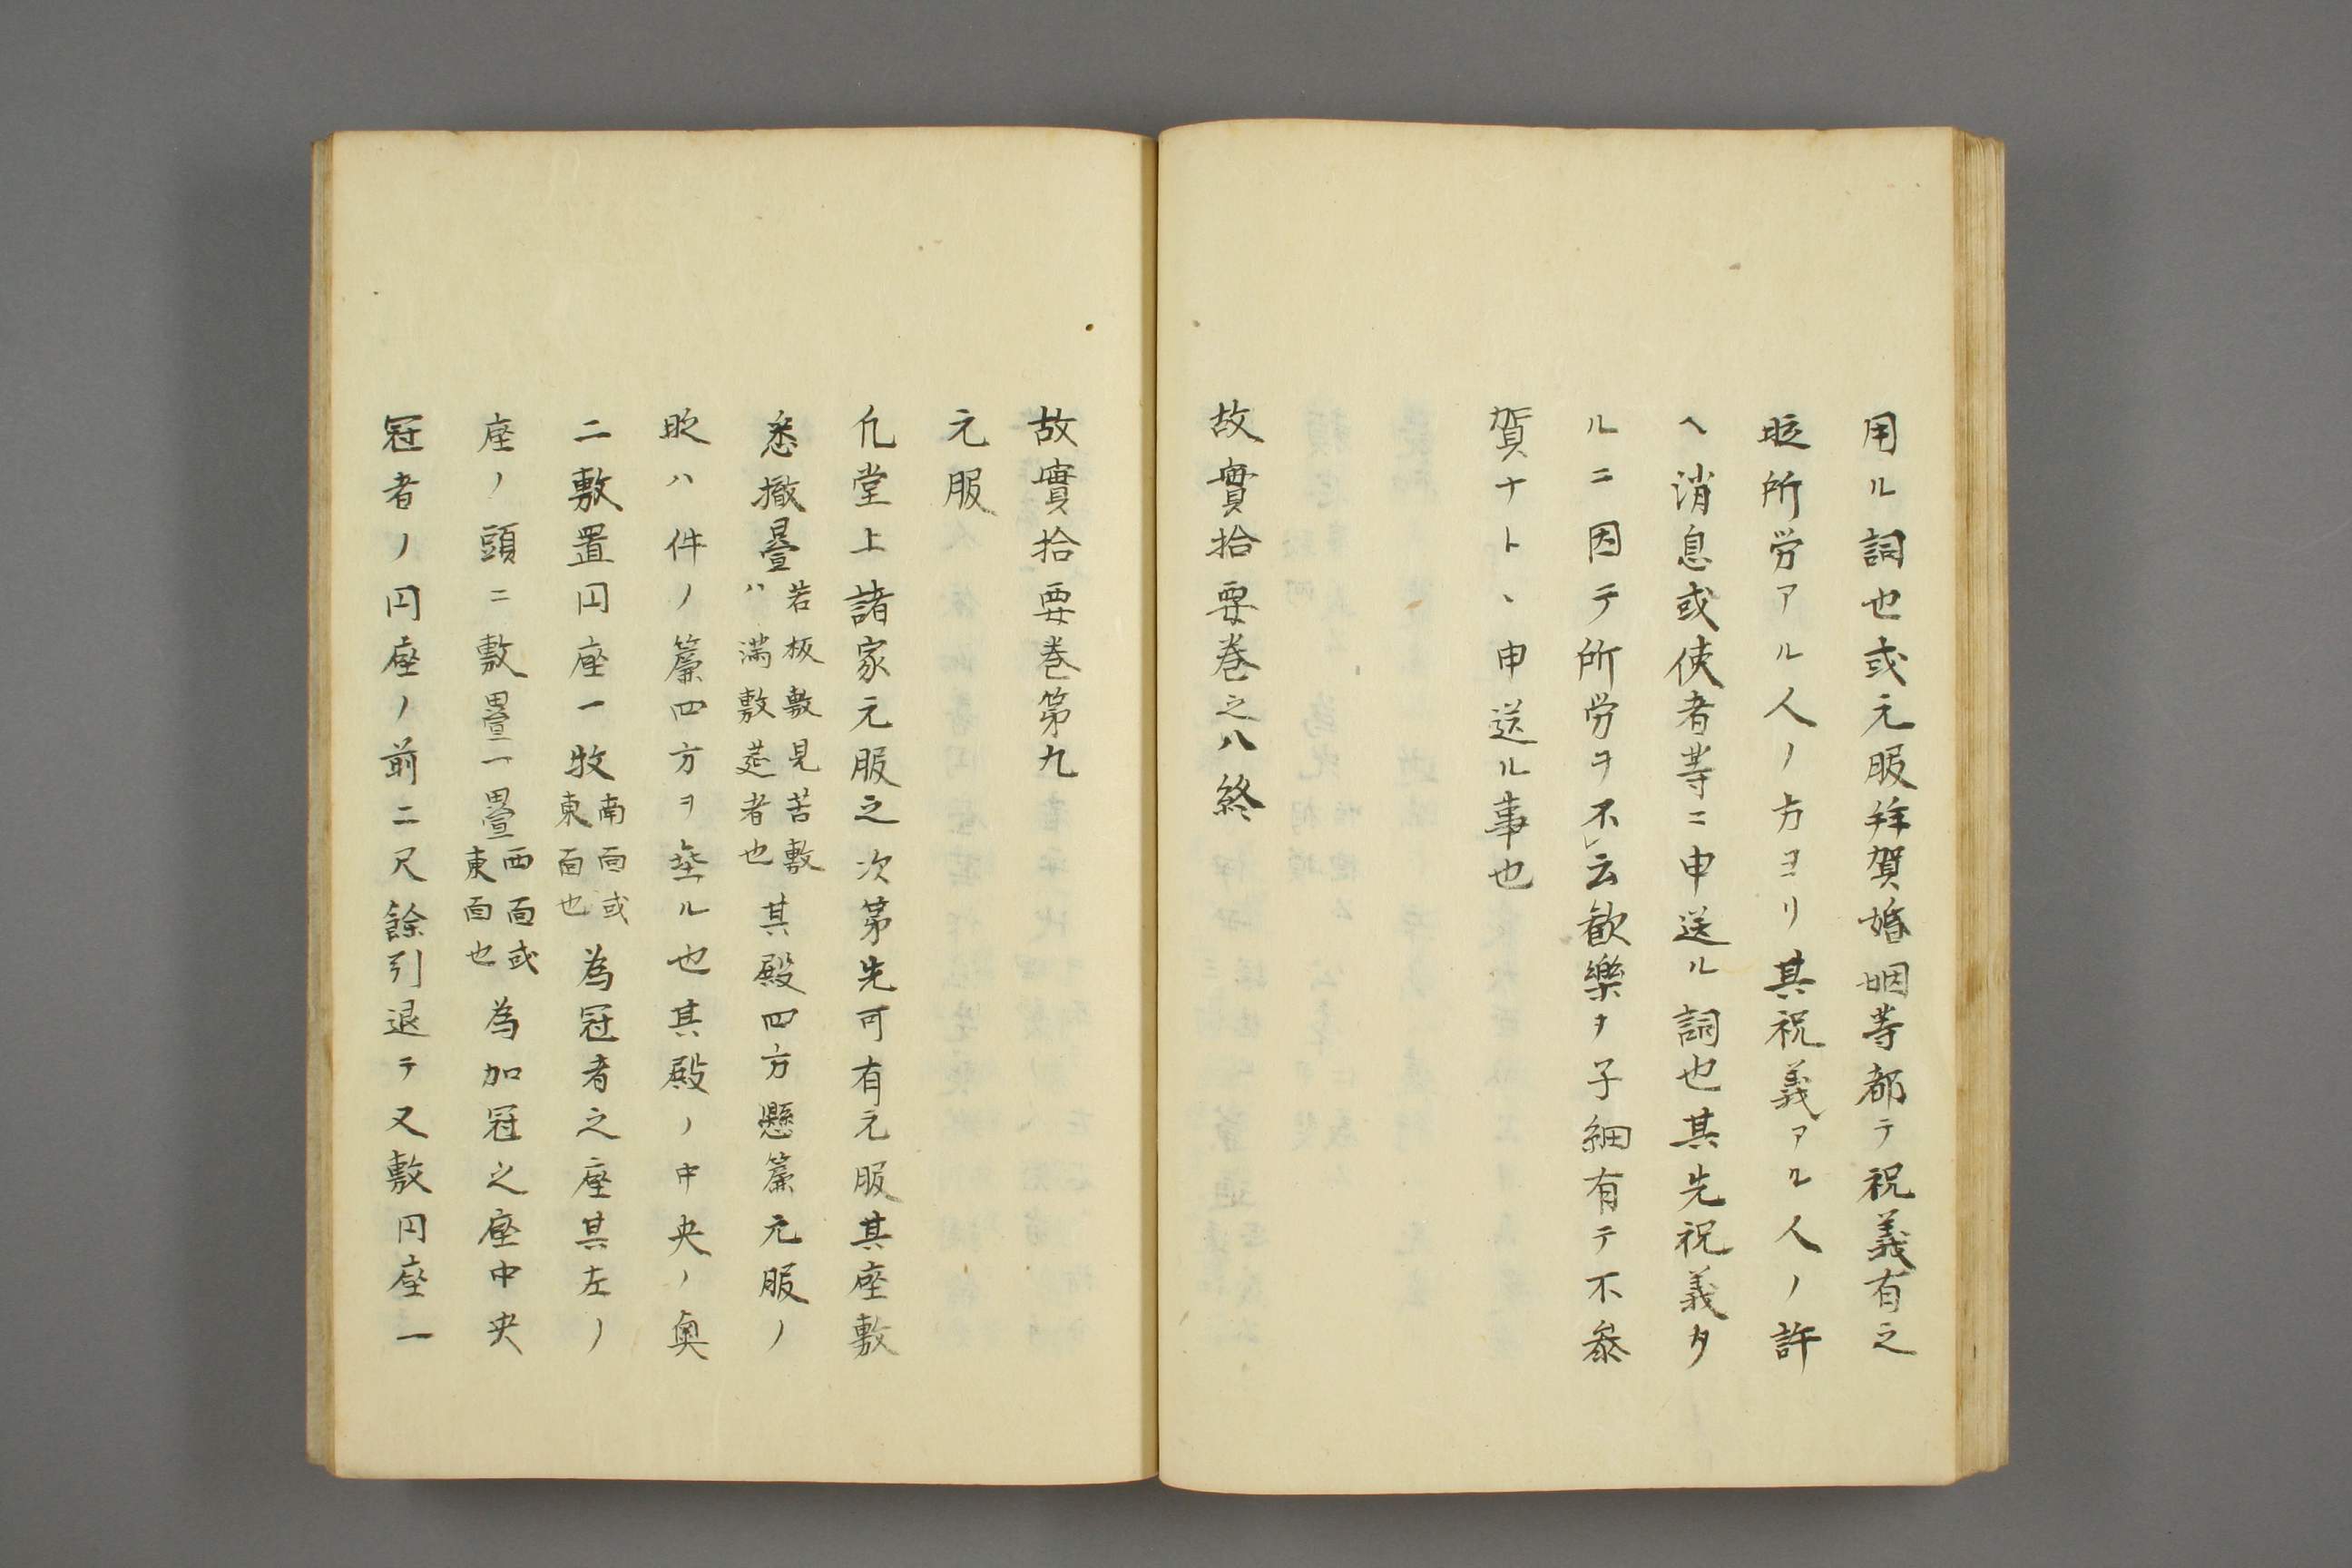 用ル詞也或元服拜賀婚姻等都テ祝義有之
時所労アル人ノ方ヨリ其祝義アル人ノ許
ヘ消息或使者等ニ申送ル詞也其先祝義タ
ルニ因テ所労ヲ不レ云歓樂ヲ子細有テ不參
賀ナト、申送ル事也
故實拾要卷之八終
故實拾要巻第九
元服
凢堂上諸家元服之次第先可有元服其座敷
悉撤疊
若板敷見苦敷
ハ満敷莚者也
其殿四方懸簾元服ノ
時ハ件ノ簾四方ヲ埀ル也其殿ノ中央ノ奥
二敷置円座一牧
南面或
東面也
為冠者之座其左ノ
座ノ頭ニ敷疊一疊
西面或
東面也
為加冠之座中央
冠者ノ円座ノ前ニ尺餘引退テ又敷円座一